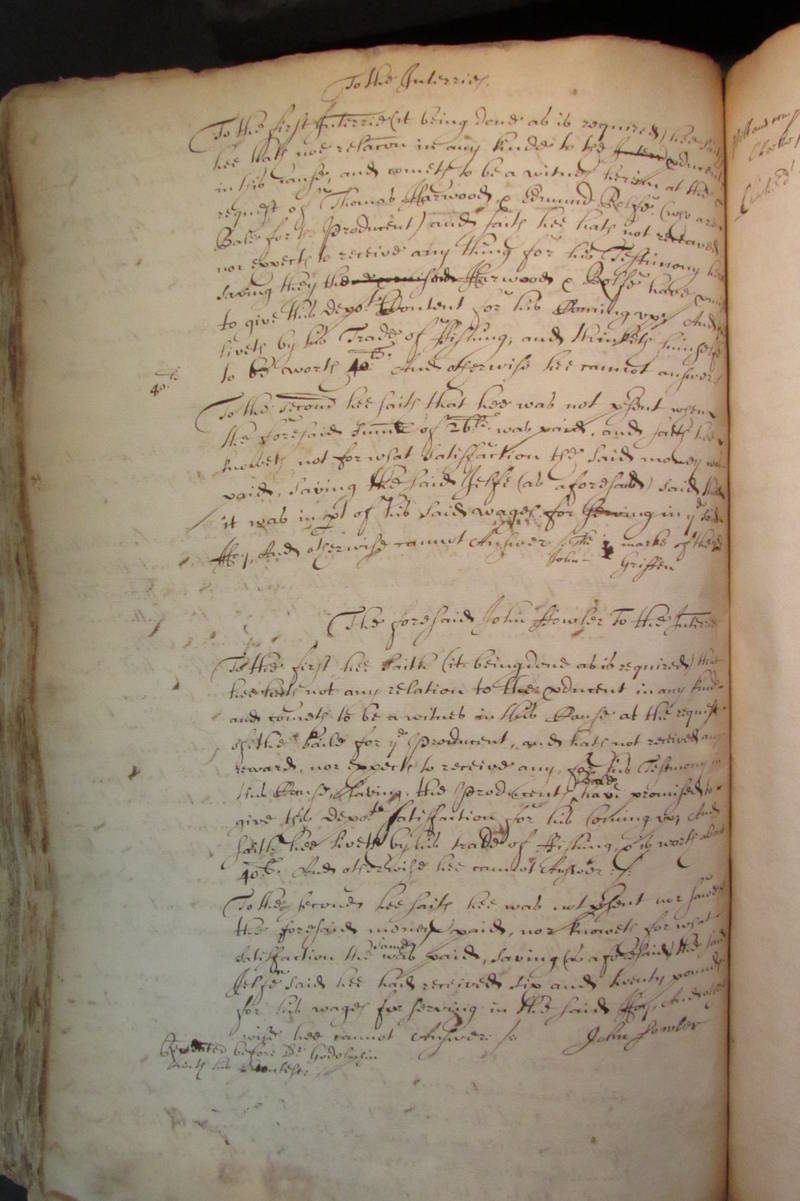 To the Interries.
To the first Interrie (it being done as is required) hee saith
hee hath noe relacon in any kinde to the producent
in this Cause, and cometh to be a witnes herein at the
request of Thomas Harwood & Edmund Jelfe (who are
Baile for the Producent) and saith hee hath not received
nor expects to receive any thing for his Testimony
saving they the said Harwood & Jelfe have
to give this depot Content for his Coming upp And
liveth by his Trade of Fishing, and thinketh himselfe
to be worth 40li. And otherwise hee cannot answer
40li
To the second hee saith that hee was not psent when
the foresaid summe of 26li was paid, and saith hee
knoweth not for what satisfaction the said money was
paid, saving the said Jelfe (as aforesaid) said that
it was in pt of his said wages for serving in ye said
Hoy, And otherwise cannot Answer /. The marke of the sd
John Griffen
The foresaid John Fowler To the Interies
To the first hee saith (it being done as is required) that
hee hath not any relation to the producent in any kinde
and cometh to be a witnes in this Cause at the request
of the baile for ye Producent, and hath not received any
reward, nor expects to receive any for his Testimony in
this Cause, saving the Producent have promised to
give this depot satisfaction for his Coming up, And
saith hee liveth by his trade of Fishing & is worth about
40li. And otherwise hee cannot Answer /.
To the second hee saith hee was not psent nor sawe
the foresaid money paid, nor knoweth for what
satisfaction the same was paid, saving (as aforesaid) the said
Jelfe said hee had received six and twenty pounds
for his wages for serving in the said Hoy, And other
wise hee cannot Answer /.
John Fowler
Repeated before Dr Godolphin